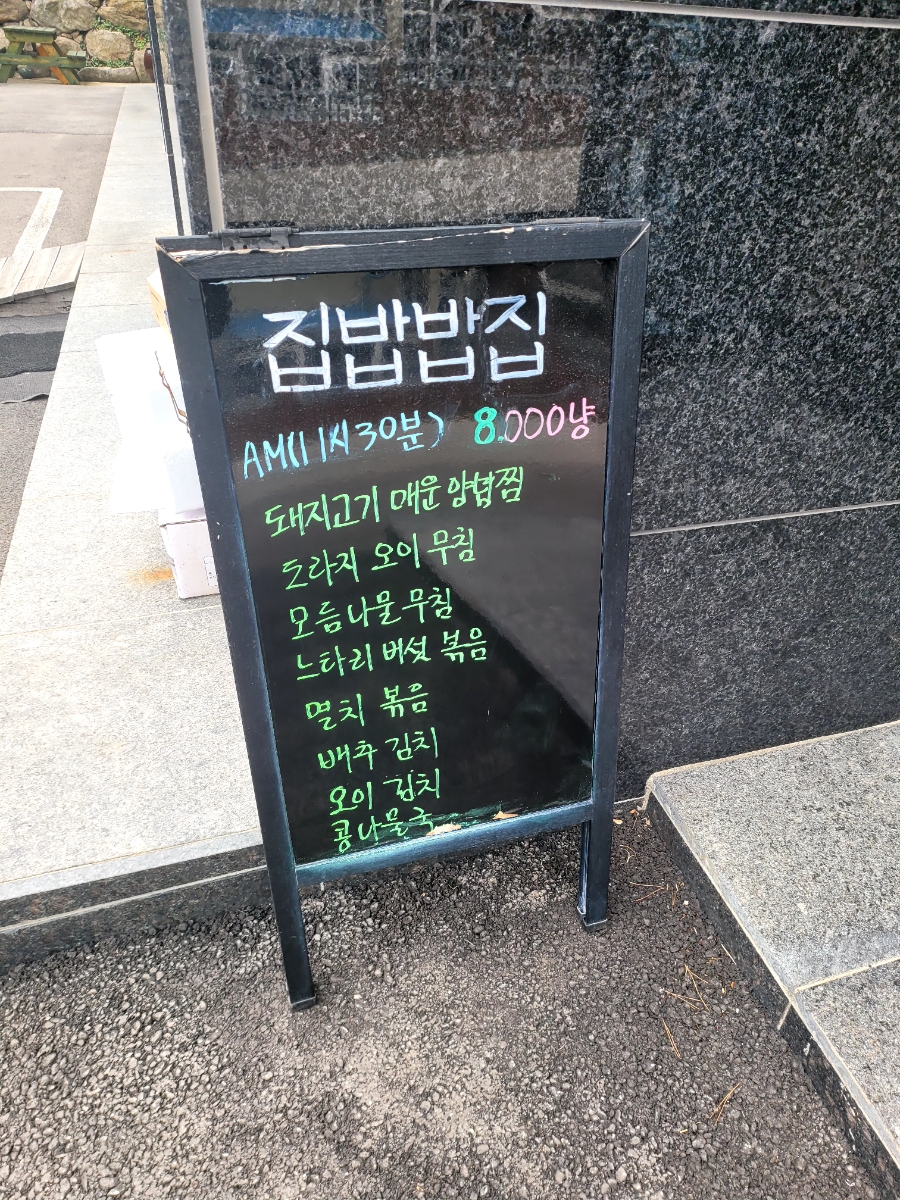 집밥밥집
AM(11시30분) 8.000냥
돼지고기 매운 양념찜
도라지 오이 무침
모듬나물무침
느타리 버섯 볶음
멸치 볶음
배추 김치
오이 김치
콩나물국